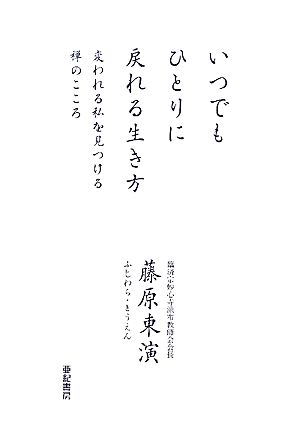 いつでも
ひとりに
戻れる生き方
変われる私を見つける
禅のこころ
臨済宗妙心寺派布教師会会長
藤原東演
ふじわら・とうえん
亜紀書房